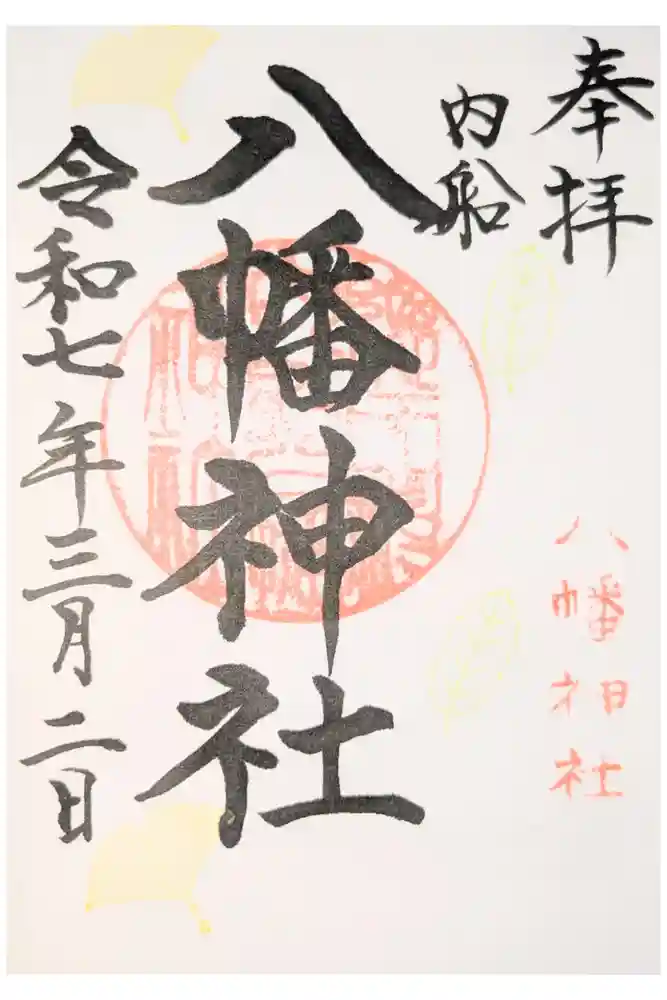 奉拝
内船
八幡神社
八幡神社
令和七年三月二日